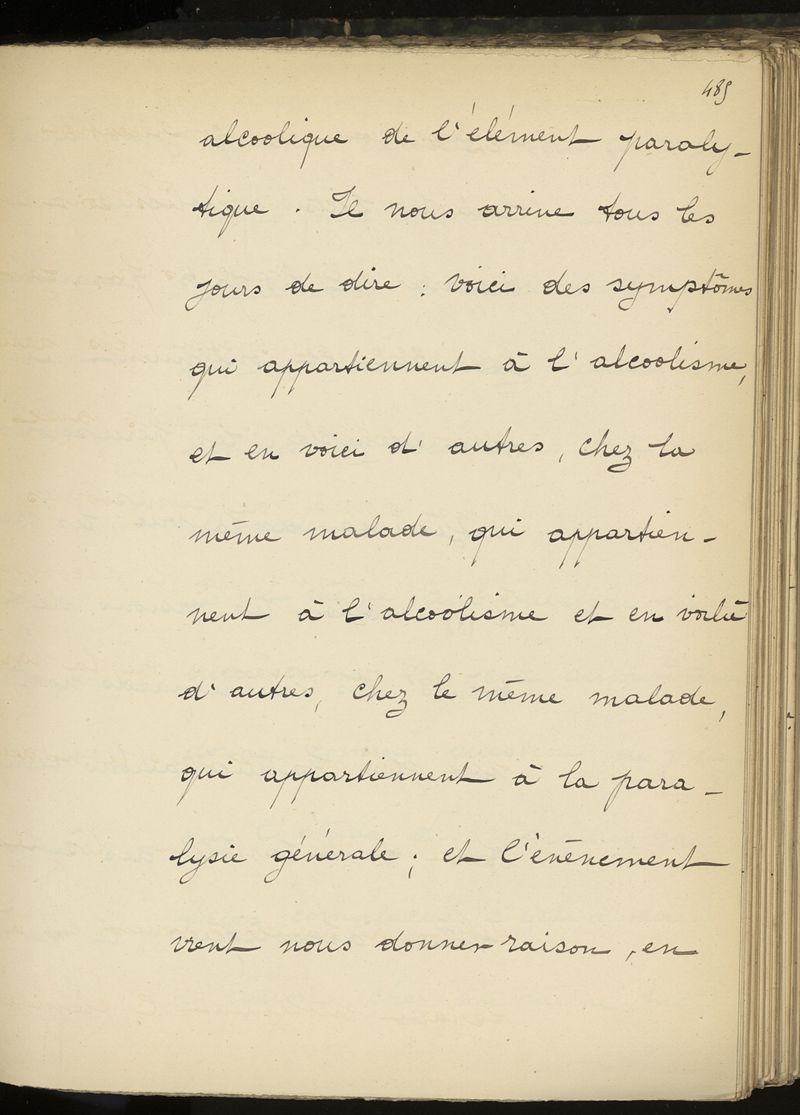 489
alcoolique de l'élément paraly-
tique. Il nous arrive tous les
jours de dire : voici des symptômes
qui appartiennent à l'alcoolisme,
et en voici d'autres, chez la
même malade, qui appartien-
nent à l'alcoolisme et en voilà
d'autres, chez le même malade,
qui appartiennent à la para-
lysie générale ; et l'évènement
vient nous donner raison, en